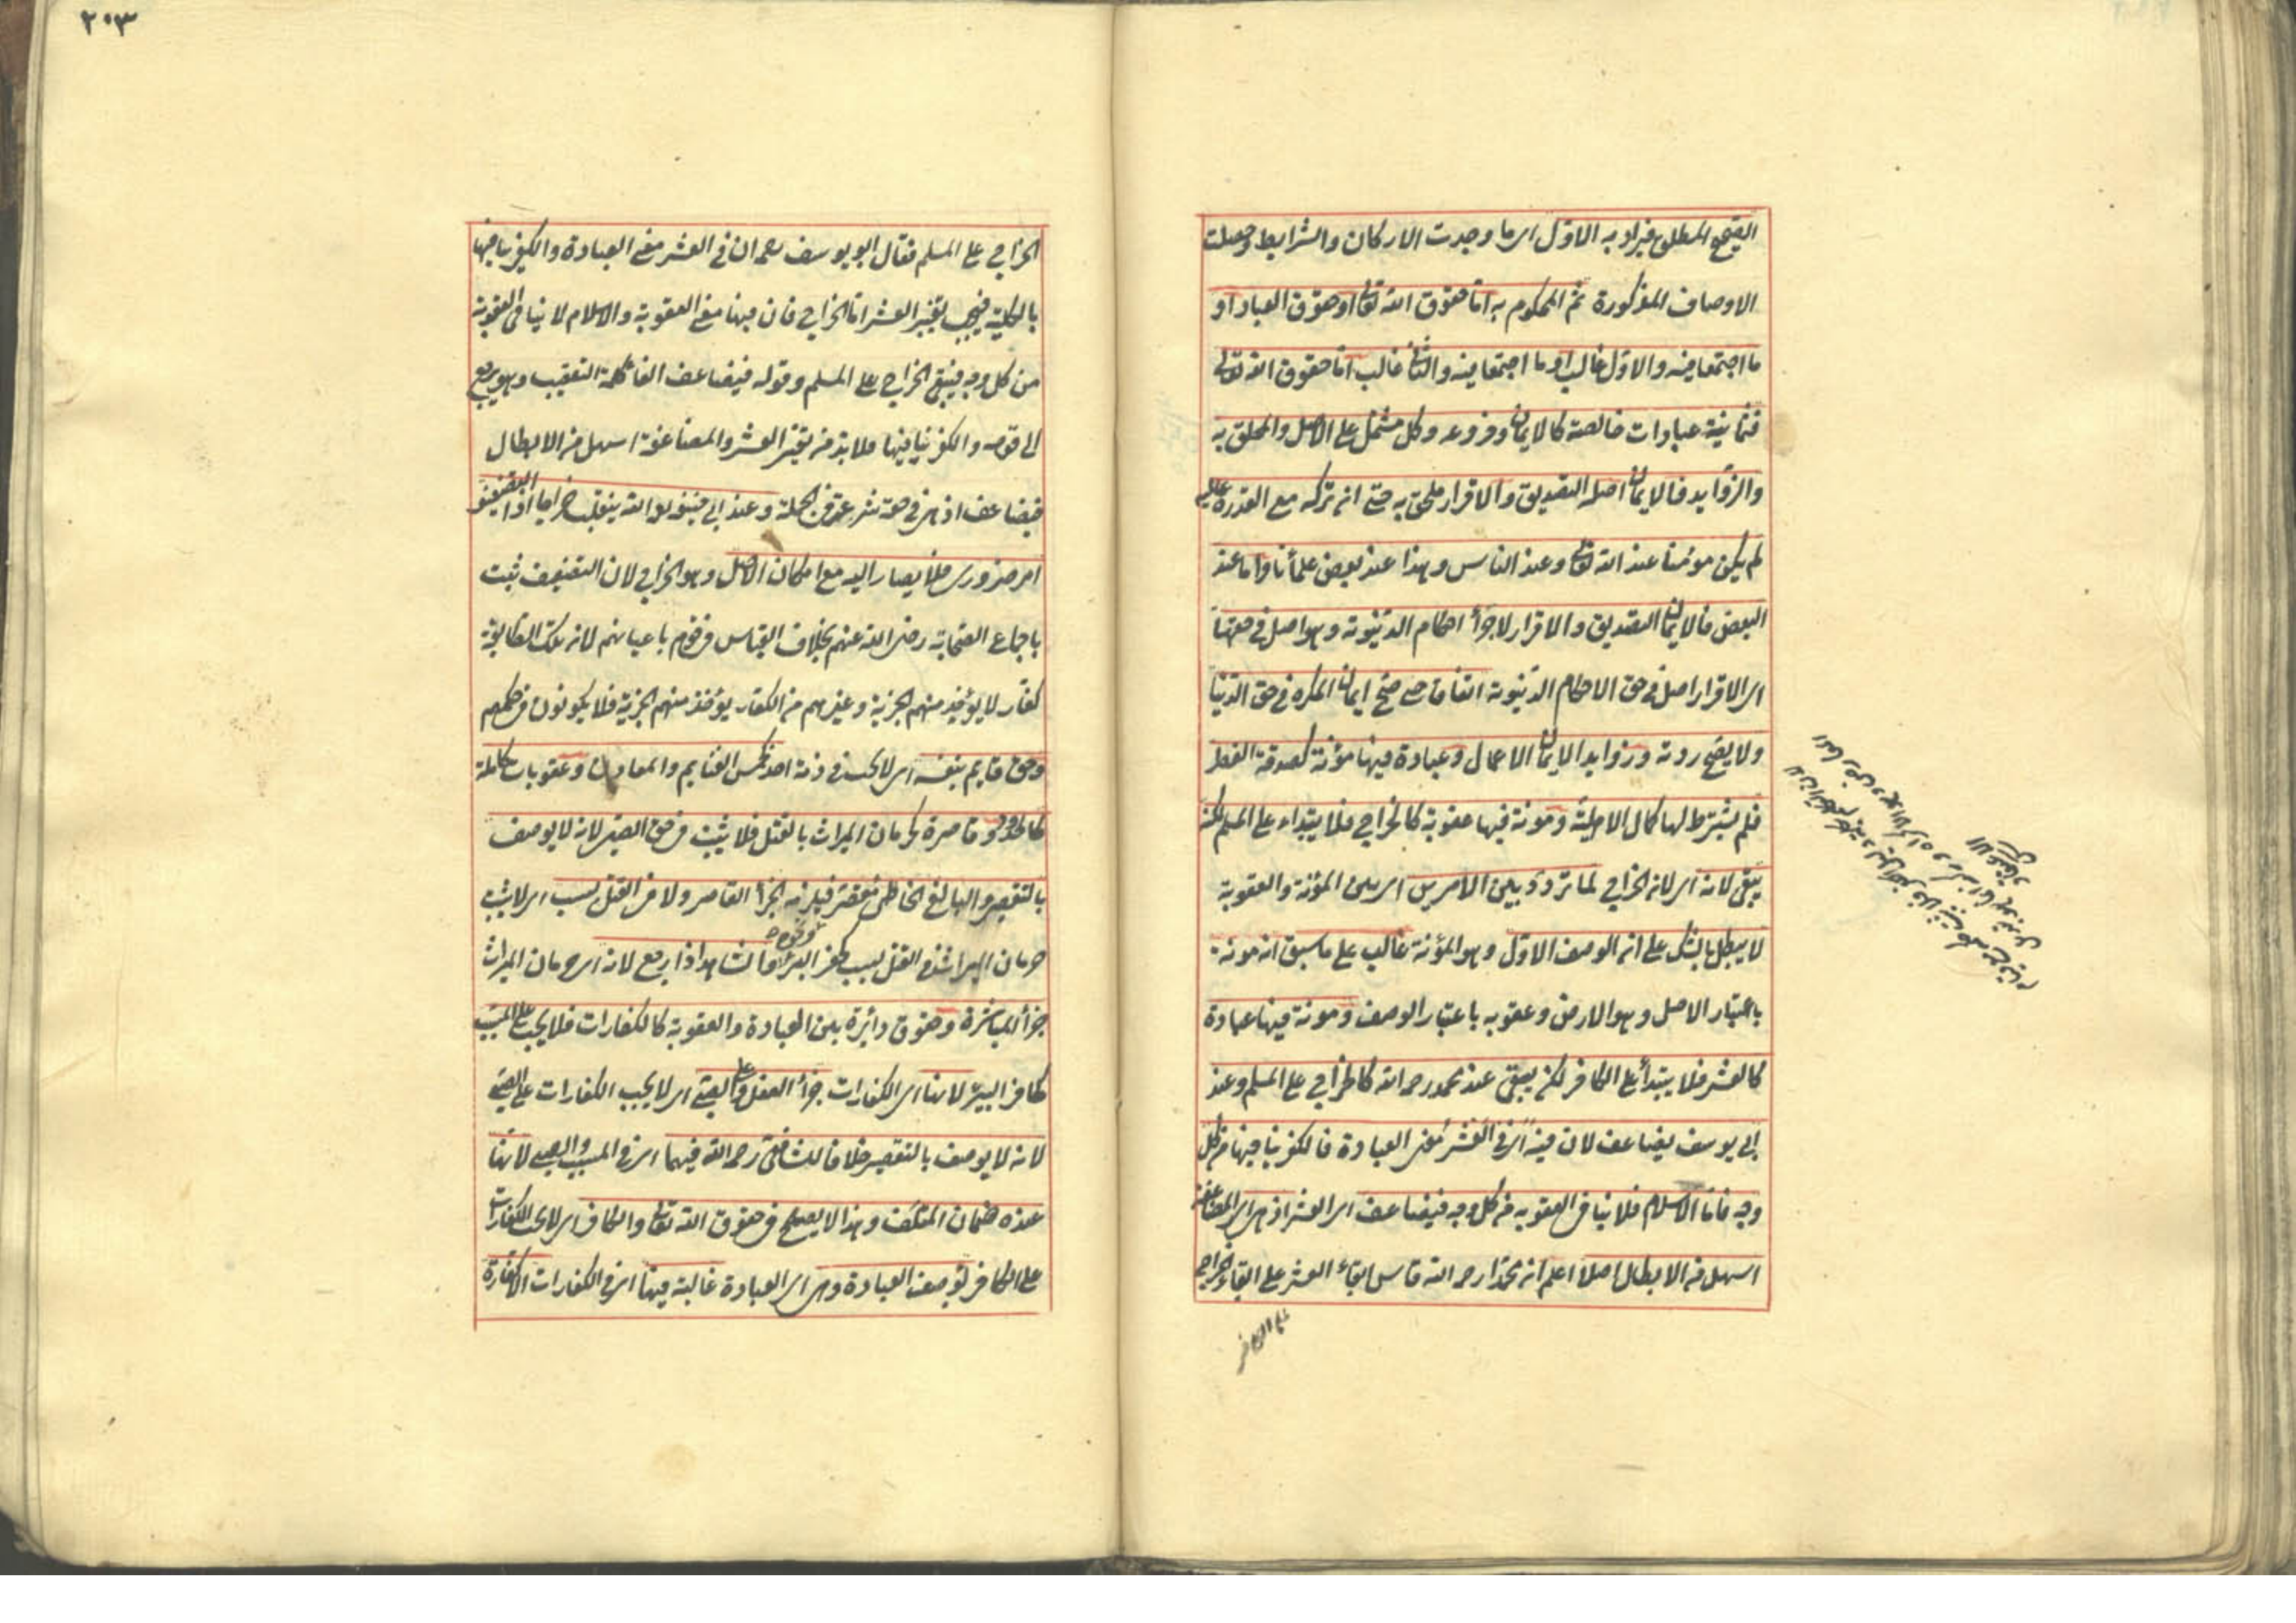 الصحيح المطلق فيراد به الاول اى ما وجدت الاركان والشرايط وحصلت
الاوصاف المذكورة ثم المحكوم به اما حقوق الله تعالى او حقوق العباد او
ما اجتمعا فيه والاول غالب او ما اجتمعا فيه والثانى غالب اما حقوق الله تعالى
فثمانية عبادات خالصة كالايمان وفروعه وكل مشتمل على الاصل والملحق به
والزوايد فالايمان اصله التصديق والاقرار ملحق به حتى ان تركه مع القدرة عليه
لم يكن مؤمنا عند الله تعالى وعند الناس وهذا عند بعض علمائنا واما عند
البعض فالايمان التصديق والاقرار لاجراء احكام الدنيوية وهو اصل فى حقها
اى الاقرار اصل فى حق الاحكام الدنيوية اتفاقا حتى صح ايمان المكره فى حق الدنيا
ولا يصح ردته وزوايد الايمان الاعمال وعبادة فيها مؤنة كصدقة الفطر
فلم يشترط لها كمال الاهلية ومونة فيها عقوبة كالخراج فلا يبتداء على المسلم لكنه
يبقى لانه اى لان الخراج لما تردد بين الامرين اى بين المؤنة والعقوبة
لا يبطل بالشك على ان الوصف الاول وهو المؤنة غالب على ما سبق انه مونة
باعتبار الاصل وهو الارض وعقوبه باعتبار الوصف ومونة فيها عبادة
كالعشر فلا يبتدأ على الكافر لكن يبقى عند محمد رحمه الله كالخراج على المسلم وعند
ابى يوسف يضاعف لان فيه اى فى العشر معنى العبادة فالكفر ينافيها من كل
وجه فاما الاسلام فلا ينافى العقوبه من كل وجه فيضاعف اى العشر اذ هى اى المضاعفة
اسهل من الابطال اصلا اعلم ان محمدا رحمه الله قاس ابقاء العشر على ابقاء الخراج
على الكافر
٢٠٣
الخراج على المسلم فقال ابو يوسف رحمه ان فى العشر معنى العبادة والكفر ينافيها
بالكلية فيجب تغيير العشر اما الخراج فان فيها معنى العقوبة والاسلام لا ينافى العقوبة
من كل وجه فيبقى الخراج على المسلم وقوله فيضاعف الفا كلمة التعقيب وهو يرجع
الى قوله والكفر ينافيها فلا بد من تغيير العشر والمضاعفة اسهل من الابطال
فيضاعف اذ هى فى حقه شرعت فى الجملة وعند ابى حنيفة رحمه الله ينقلب خراجا اذ التضعيف
امر ضرورى فلا يصار اليه مع امكان الاصل وهو الخراج لان التضعيف ثبت
باجماع الصحابة رضى الله عنهم بخلاف القياس فى قوم باعيانهم لان تلك الطايفة
كفار لا يؤخذ منهم الجزية وغيرهم من الكفار يؤخذ منهم الجزية فلا يكونون فى حكمهم
وحق قايم بنفسه اى لا يجب فى ذمة احد كخمس الغنايم والمعادن وعقوبات كاملة
كالحدود وقاصرة كحرمان الميراث بالقتل فلا يثبت فى حق الصبى لانه لا يوصف
بالتقصير والبالغ الخاطى مقصر فيلزمه الجزاء القاصر ولا فى القتل بسبب اى لا يثبت
حرمان الميراث فى القتل بسبب كحفر البئر ونحوه والشاهد اذا رجع لانه اى حرمان الميراث
جزاء المباشرة وحقوق دائرة بين العبادة والعقوبة كالكفارات فلا يجب على المسبب
كحافر البئر لانها اى الكفارات جزاء الفعل وعلى الصبى اى لا يجب الكفارات على الصبى
لانه لا يوصف بالتقصير خلافا للشافعى رحمه الله فيهما اى فى المسبب والصبى لانها
عنده ضمان المتلف وهذا لا يصح فى حقوق الله تعالى والكافر اى لا يجب الكفارات
على الكافر لوصف العبادة وهى اى العبادة غالبة فيها اى فى الكفارات الا كفارة